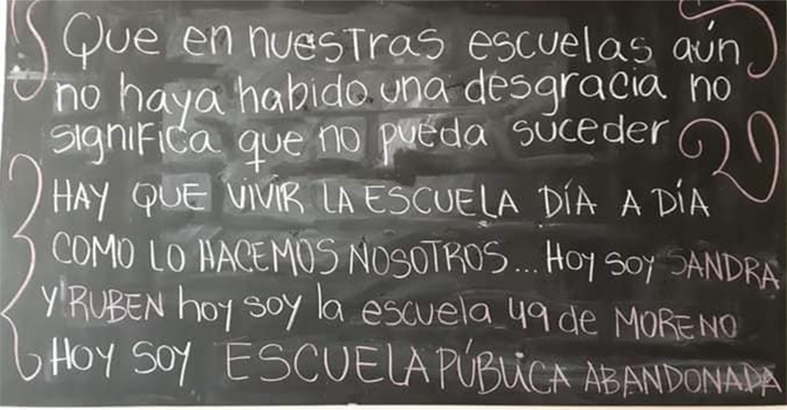 Que en nuestras escuelas aún
no haya habido una desgracia no
significa que no pueda suceder
HAY QUE VIVIR LA ESCUELA DÍA A DÍA
COMO LO HACEMOS NOSOTROS... Hoy soy SANDRA
Y RUBEN hoy soy la escuela 49 de MORENO
Hoy soy ESCUELA PÚBLICA ABANDONADA